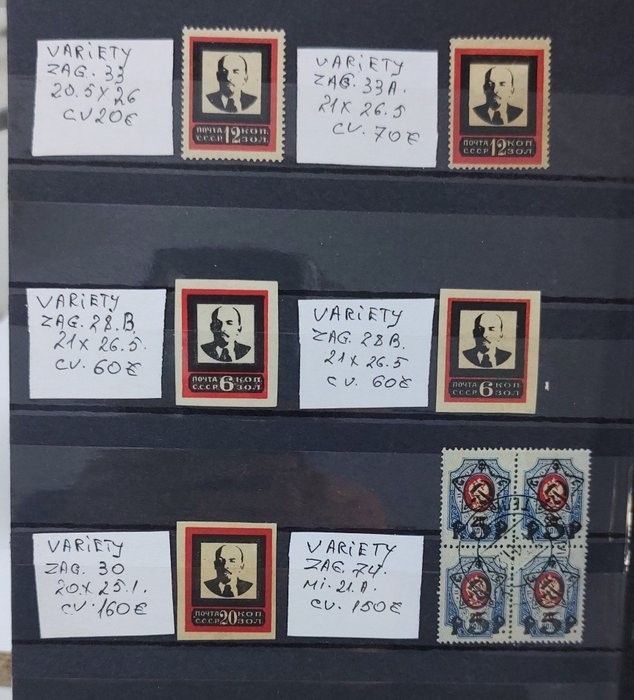 VARIETY
ZAG. 33
20.5 X 26
CV 20€
ПОЧТА 12 КОП.
СССР ЗОЛ.
VARIETY
ZAG. 33A.
21 X 26.5
CV. 70€
ПОЧТА 12 КОП.
СССР ЗОЛ.
VARIETY
ZAG. 28.B.
21 X 26.5.
CV. 60€
ПОЧТА 6 КОП.
СССР ЗОЛ.
VARIETY
ZAG. 28B.
21 X 26.5
CV. 60€
ПОЧТА 6 КОП.
СССР ЗОЛ.
VARIETY
ZAG. 30
20 X 25.1.
CV. 160€
ПОЧТА 20 КОП.
СССР ЗОЛ.
VARIETY
ZAG. 74.
Mi. 21.A.
CV. 150€
Р 5 Р Р 5 Р
Р 5 Р Р 5 Р